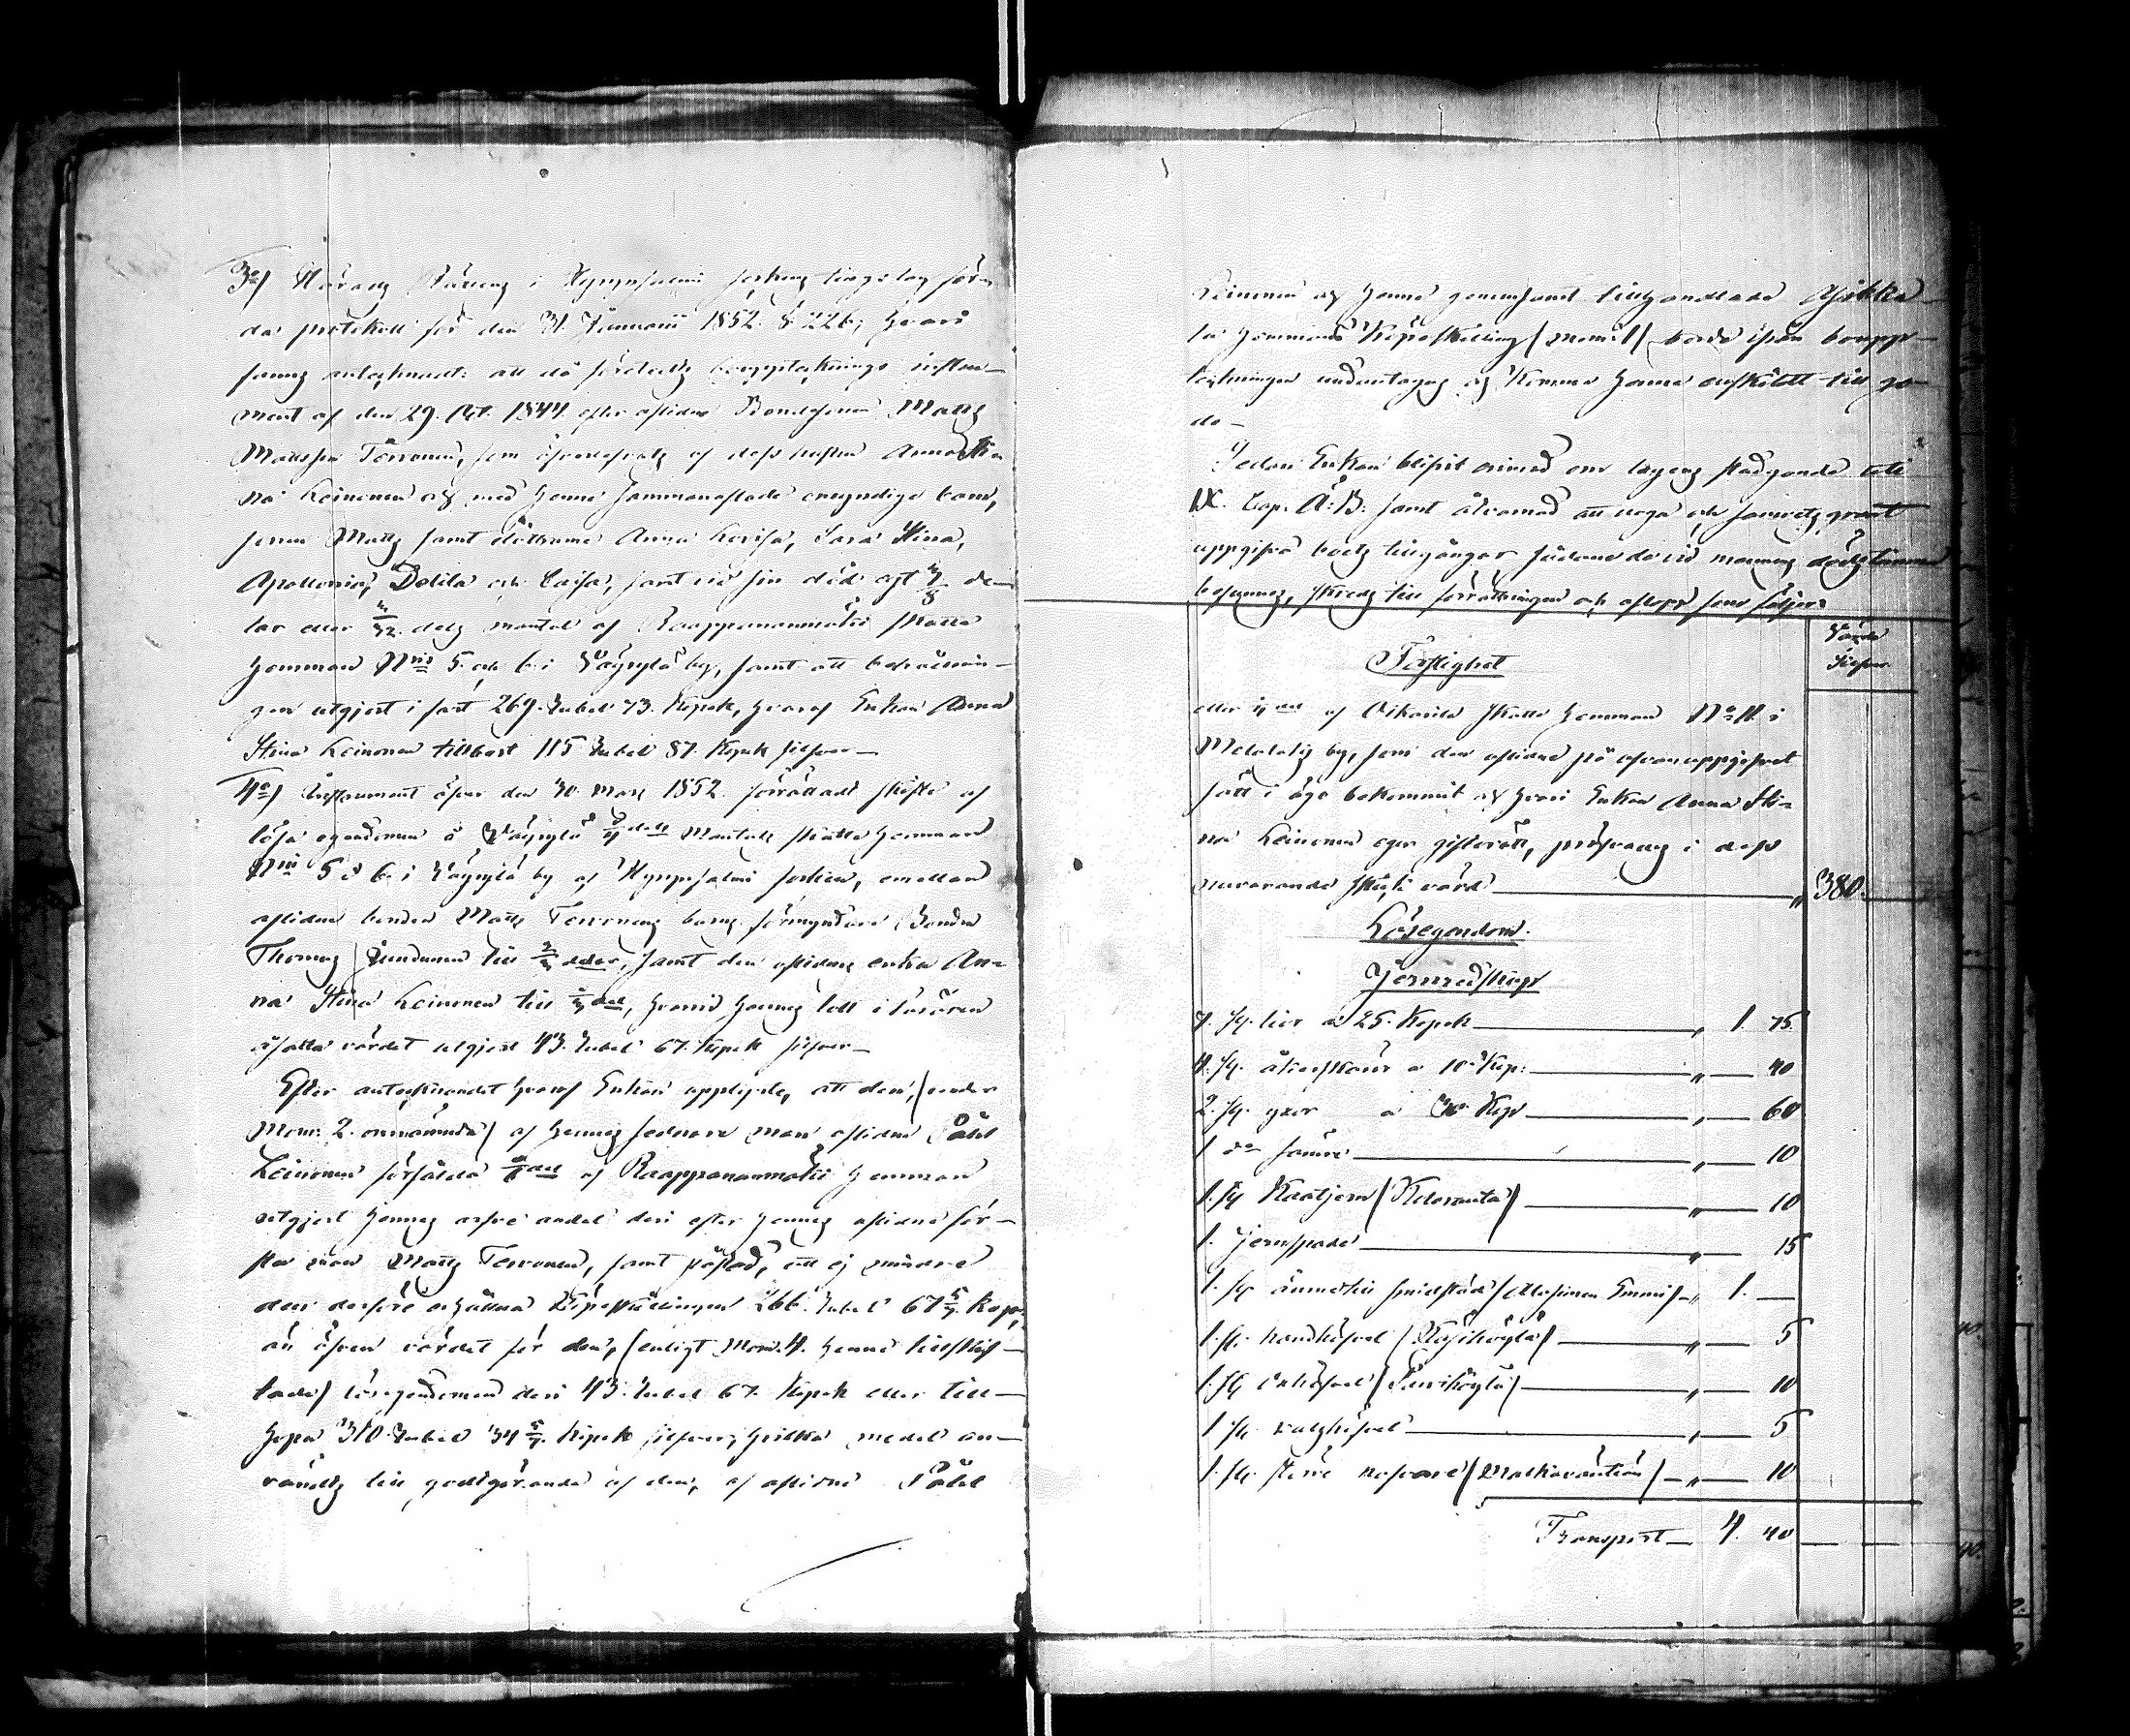 3o/ Härads Rättens i Hyrynsalmi sockens tingslag för-
da protokoll för den 31. Januarii 1852. § 226; hvari
finnes antecknadt: att då företedts bouppteknings instru-
ment af den 29. Oct. 1844. efter aflidne Bondesonen Matts
Mattsson Tervonen, som öfverlefvats af dess hustru Anna Sti-
na Leinonen och med henne sammanaflade omyndige barn,
sonen Matts samt döttrarne Anna Lovisa, Sara Stina,
Apollonia, Delila och Caisa, samt vid sin död egt de-
lar eller dels mantal af Raappananmäki skatte
hemman Nris 5. och 6. i Väyrylä by, samt att behållnin-
gen utgjort i fast 269. Rubel 73. Kopek, hvaraf Enkan Anna
Stina Leinonen tillkast 115 Rubel 87. Kopek silfver—
4o/ Instrument öfver den 30. Mars 1852. förrättadt skifte af
lösa egendomen å Väyrylä dels Mantals skatte hemman
Nris 5 & 6. i Väyrylä by af Hyrynsalmi socken, emellan
aflidne bonden Matts Tervonens barns förmyndare Bonden
Thomas till delar, samt den aflidnes enka An-
na Stina Leinonen till del, hvarvid hennes lott i lösören
åsatta värdet utgjort 43. Rubel 67. Kopek silfver—
Efter antecknandet hvaraf Enkan upplyste, att den, (under
Mom: 2. omnämnda) af hennes sednare man aflidne Påhl
Leinonen försålda del af Raappananmäki hemman
utgjort hennes arfve andel deri efter hennes aflidne för-
sta man Matts Tervonen, samt påstod, att ej mindre
den derföre erhållna Köpeskillingen 266. Rubel 67 Kop:,
än äfven värdet för den, (enligt Mom. 4. henne tillskif-
tade) lösegendomen deri 43. Rubel 67. Kopek eller till-
hopa 310. Rubel 34 Kopek silfver; hvilka medel an-
vändts till godtgörande af den, af aflidne Påhl
Leinonen och henne gemensamt tillhandlade
la hemmans Köpeskilling (Mom: 1) borde ifrån boupp-
tekningen undantagas och komma henne enskildt till go-
do—
Sedan Enkan blifvit erinrad om lagens stadgande uti
IX. Cap. Ä: B: samt åtvarnad att noga och samvetsgrant
uppgifva boets tillgångar sådana de vid mannens dödstimma
befunnos, skreds till förrättningen och aflopp som följer:
Värde
Silfver
Fastighet
eller del af skatte hemman No 11. i
Melalaks by, som den aflidne på ofvanuppgifvet
sätt i ägo bekommit och hvari Enkan Anna Sti-
na Leinonen eger giftorätt, pröfvades i dess
nuvarande skick värd — „ 380.
Lösegendom.
Jernredskap
7. st. liar à 25. Kopek — „ 1. 75.
4. st. åkerskäror à 10. Kop: — „ — 40
2. st. yxor à 30. Kop — „ — 60
1 do sämre — „ — 10
1. st — „ — 10
1. jernspade — „ — 15
1. st — „ 1. —
1. st. handhöfvel (Käsihöylä) — „ — 5
1. st — „ — 10
1 st. — „ — 5
1. st. större nafvare — „ — 10
Transport — 4. 40